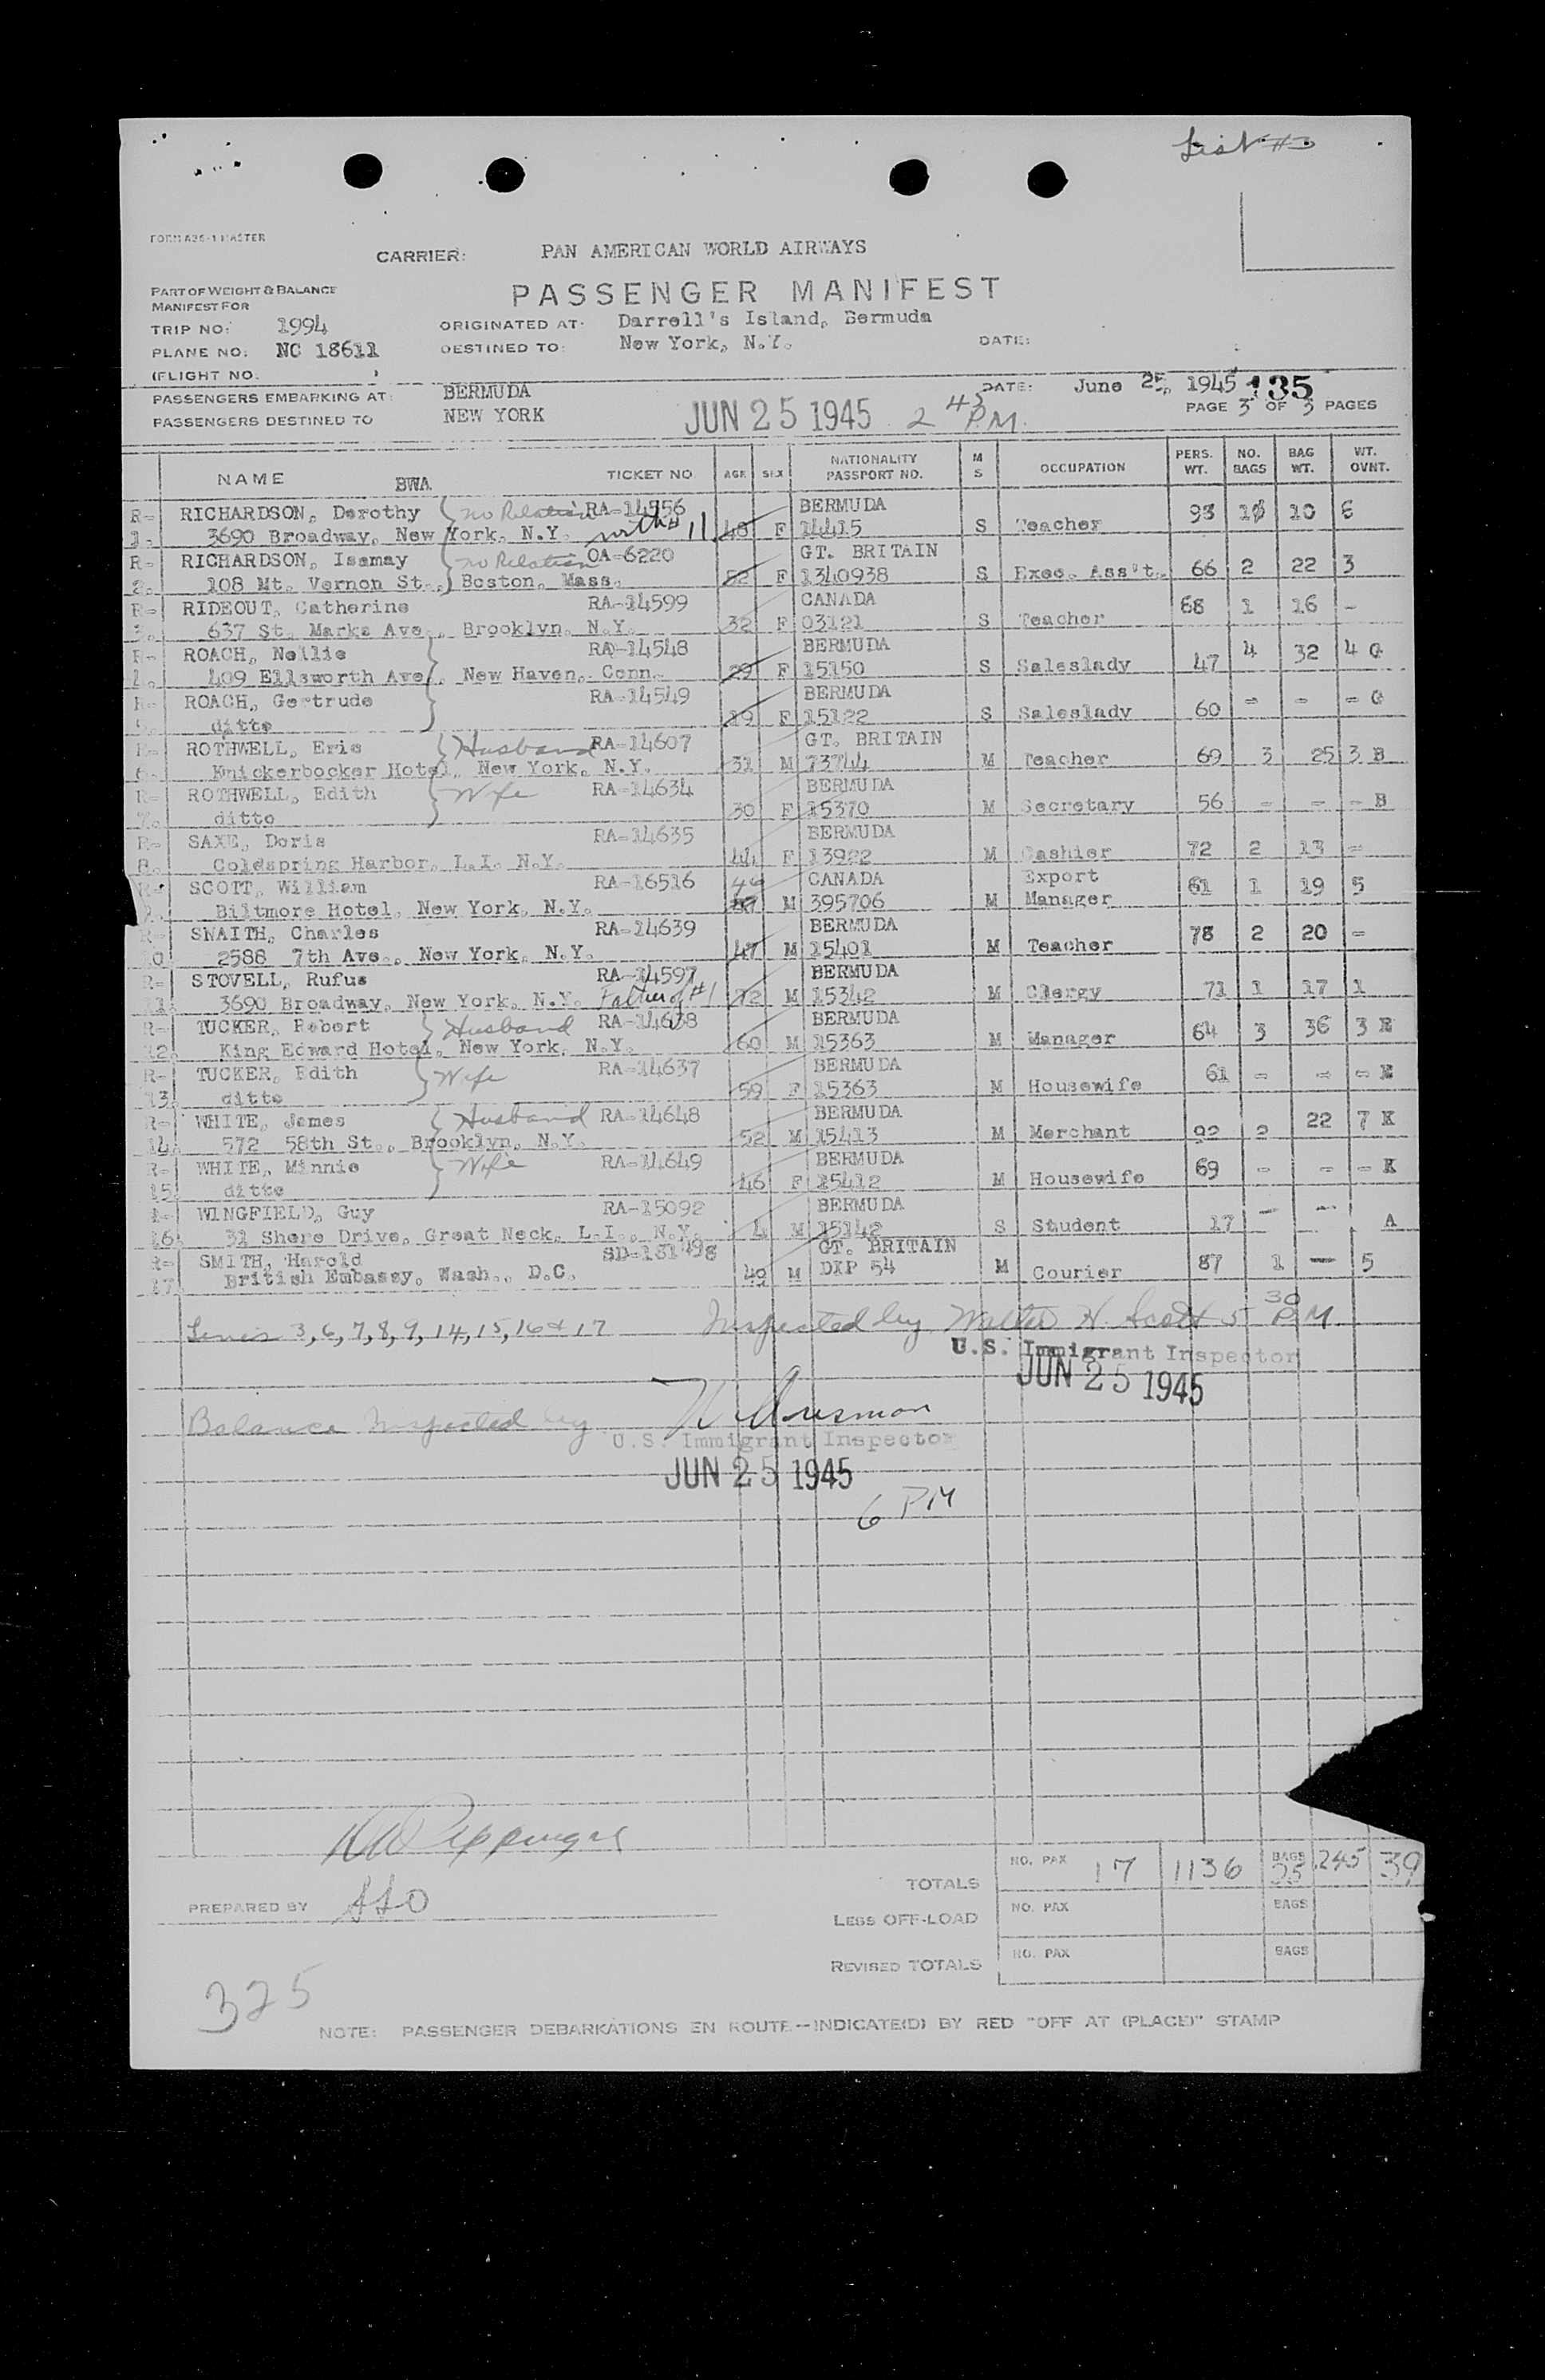 List #3
FORM A26-1 MASTER
CARRIER: PAN AMERICAN WORLD AIRWAYS
PART OF WEIGHT & BALANCE
MANIFEST FOR
PASSENGER MANIFEST
TRIP NO: 1994 ORIGINATED AT: Darrell's Island, Bermuda
PLANE NO: NC 18611 DESTINED TO: New York, N.Y. DATE:
(FLIGHT NO. )
PASSENGERS EMBARKING AT: BERMUDA DATE: June 25, 1945 135
PASSENGERS DESTINED TO NEW YORK JUN 25 1945 2 45 PM. PAGE 3 OF 3 PAGES
NAME BWA TICKET NO AGE SEX NATIONALITY PASSPORT NO. M S OCCUPATION PERS. WT. NO. BAGS BAG WT. WT. OVNT.
R- RICHARDSON, Dorothy no Relation RA-14556 BERMUDA 93 1 10 6
1. 3690 Broadway, New York, N.Y. with #11 48 F 14415 S Teacher
R- RICHARDSON, Isamay no Relation OA-6220 GT. BRITAIN
2. 108 Mt. Vernon St., Boston, Mass. 52 F 1340938 S Exec. Ass't. 66 2 22 3
R- RIDEOUT, Catherine RA-14599 CANADA 68 1 16 -
3. 637 St. Marks Ave., Brooklyn, N.Y. 32 F 03121 S Teacher
R- ROACH, Nellie RA-14548 BERMUDA 4 32 4 G
4. 409 Ellsworth Ave., New Haven, Conn. 29 F 15150 S Saleslady 47
R- ROACH, Gertrude RA-14549 BERMUDA - - - G
5. ditto 19 F 15122 S Saleslady 60
R- ROTHWELL, Eric Husband RA-14607 GT. BRITAIN
6. Knickerbocker Hotel, New York, N.Y. 31 M 73744 M Teacher 69 3 25 3 B
R- ROTHWELL, Edith Wife RA-14634 BERMUDA
7. ditto 30 F 15370 M Secretary 56 - - - B
R- SAXE, Doris RA-14635 BERMUDA
8. Coldspring Harbor, L.I. N.Y. 44 F 13922 M Cashier 72 2 13 -
R- SCOTT, William RA-16516 CANADA Export
9. Biltmore Hotel, New York, N.Y. M 395706 M Manager 61 1 19 5
R- SWAITH, Charles RA-14639 BERMUDA 78 2 20 -
10 2588 7th Ave., New York, N.Y. 47 M 15401 M Teacher
R- STOVELL, Rufus RA-14597 BERMUDA
11. 3690 Broadway, New York, N.Y. Father of #1 72 M 15342 M Clergy 71 1 17 1
R- TUCKER, Robert Husband RA-14638 BERMUDA
12. King Edward Hotel, New York, N.Y. 60 M 15363 M Manager 64 3 36 3 E
R- TUCKER, Edith Wife RA-14637 BERMUDA 61 - - - E
13. ditto 59 F 15363 M Housewife
R- WHITE, James Husband RA-14648 BERMUDA 22 7 K
14. 572 58th St., Brooklyn, N.Y. 52 M 15413 M Merchant 92 2
R- WHITE, Minnie Wife RA-14649 BERMUDA 69 - - - K
15. ditto 46 F 15412 M Housewife
R- WINGFIELD, Guy RA-15092 BERMUDA
16. 31 Shore Drive, Great Neck, L.I., N.Y. 4 M 15142 S Student 17 - - A
R- SMITH, Harold SD-131498 GT. BRITAIN
17. British Embassy, Wash., D.C. 49 M DIP 54 M Courier 87 1 - 5
Lines 3, 6, 7, 8, 9, 14, 15, 16 & 17 Inspected by Walter H. Scott 5 30 PM
U.S. Immigrant Inspector
JUN 25 1945
Balance Inspected by
U.S. Immigrant Inspector
JUN 25 1945
6 PM
TOTALS NO. PAX 17 1136 BAGS 25 245 39
PREPARED BY
LESS OFF-LOAD NO. PAX BAGS
REVISED TOTALS NO. PAX BAGS
325
NOTE: PASSENGER DEBARKATIONS EN ROUTE--INDICATE(D) BY RED "OFF AT (PLACE)" STAMP